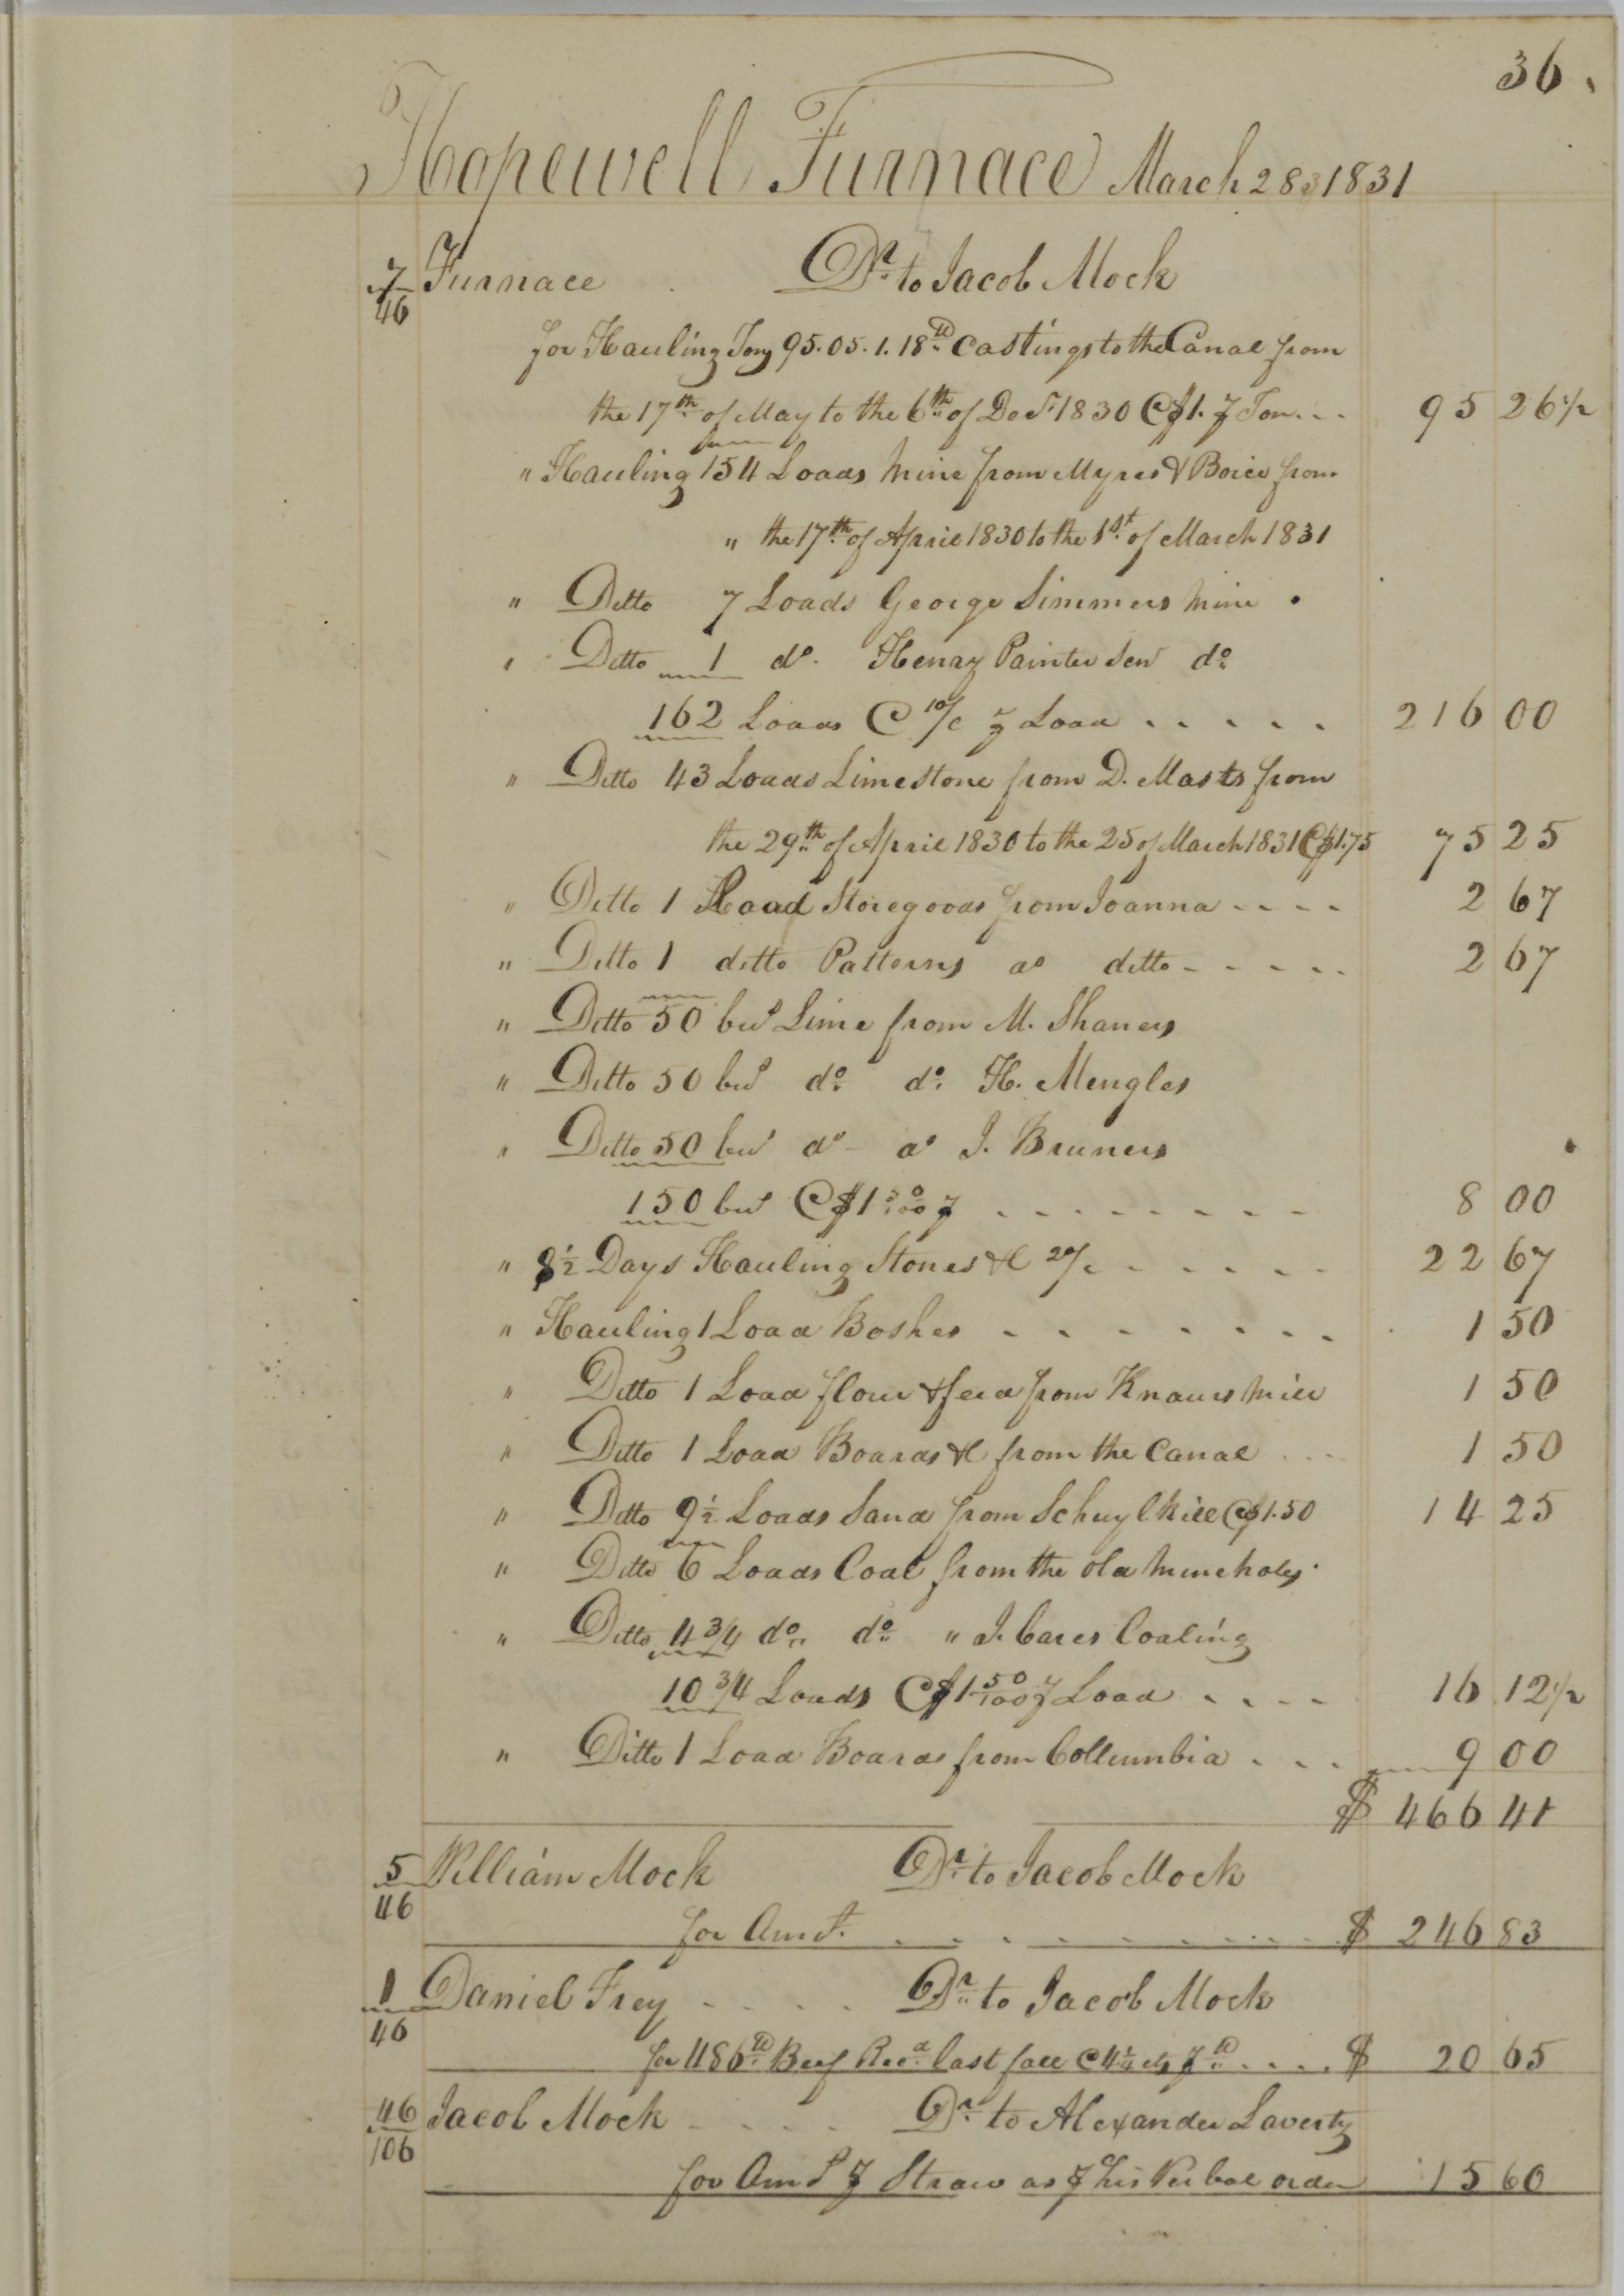 36.
Hopewell Furnace March 28 1831
7 Furnace Dr. to Jacob Mock
46
for Hauling Tons 95.05.1.18 lb Castings to the Canal from
the 17th of May to the 6th of Decr. 1830 @ $1. ⅌ Ton... 95 26 1/2
" Hauling 154 Loads Mine from Myres & Boice from
" the 17th of April 1830 to the 1st of March 1831
" Ditto 7 Loads George Simmers Mine
" Ditto 1 do. Henry Painter Sen do.
162 Loads @ 10/ ⅌ Load ..... 216 00
" Ditto 43 Loads Limestone from D. Masts from
the 29th of April 1830 to the 25 of March 1831 @ $1.75 75 25
" Ditto 1 Load Storegoods from Joanna .... 2 67
" Ditto 1 ditto Patterns do ditto ..... 2 67
" Ditto 50 bus Lime from M. Shaners
" Ditto 50 bus do. do. H. Mengles
" Ditto 50 bus do do J. Bruners
150 bus @ $1 ⅌ ........ 8 00
" 8 1/2 Days Hauling Stones &c 20/ ...... 22 67
" Hauling 1 Load Boshes ........ 1 50
" Ditto 1 Load flour & feed from Knaurs Mill 1 50
" Ditto 1 Load Boards &c from the Canal ... 1 50
" Ditto 9 1/2 Loads Sand from Schuylkill @ $1.50 14 25
" Ditto 6 Loads Coal from the old Mineholes
" Ditto 4 3/4 do. do. " J. Cares Coaling
10 3/4 Loads @ $1 50/100 ⅌ Load .... 16 12 1/2
" Ditto 1 Load Boards from Collumbia ... 9 00
$ 466 41
5 William Mock Dr. to Jacob Mock
46
for Amt. ........ $ 246 83
1 Daniel Frey .... Dr. to Jacob Mock
46
for 486 lb Beef Recd. last fall @ 4 1/4 cts ⅌ lb .... $ 20 65
46 Jacob Mock .... Dr. to Alexander Laverty
106
for Amt ⅌ Straw as ⅌ his Verbal order 15 60